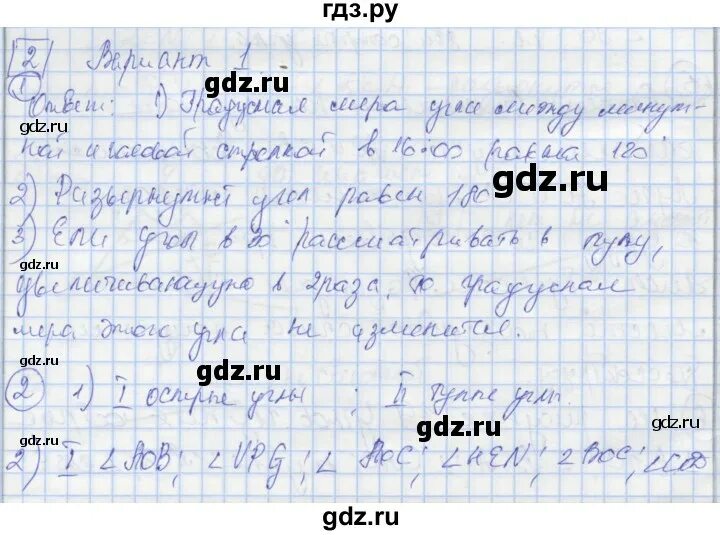 гдз.ру
2 Вариант 1
gdz.ru
gdz.ru
1
Ответ: 1) Градусная мера угла между минут-
gdz.ru
ной и часовой стрелкой в 16:00 равна 120°
gdz.ru
2) Развернутый угол равен 180°
gdz.ru
3) Если угол в 20° рассматривать в лупу,
увеличивающую в 2 раза, то градусная
gdz.ru
мера этого угла не изменится.
gdz.ru
2 1) I острые углы ; II тупые углы.
gdz.ru
gdz.ru
2) I ∠AOB; ∠VPG; ∠ AOC; ∠HEN; ∠BOC;
gdz.ru
gdz.ru